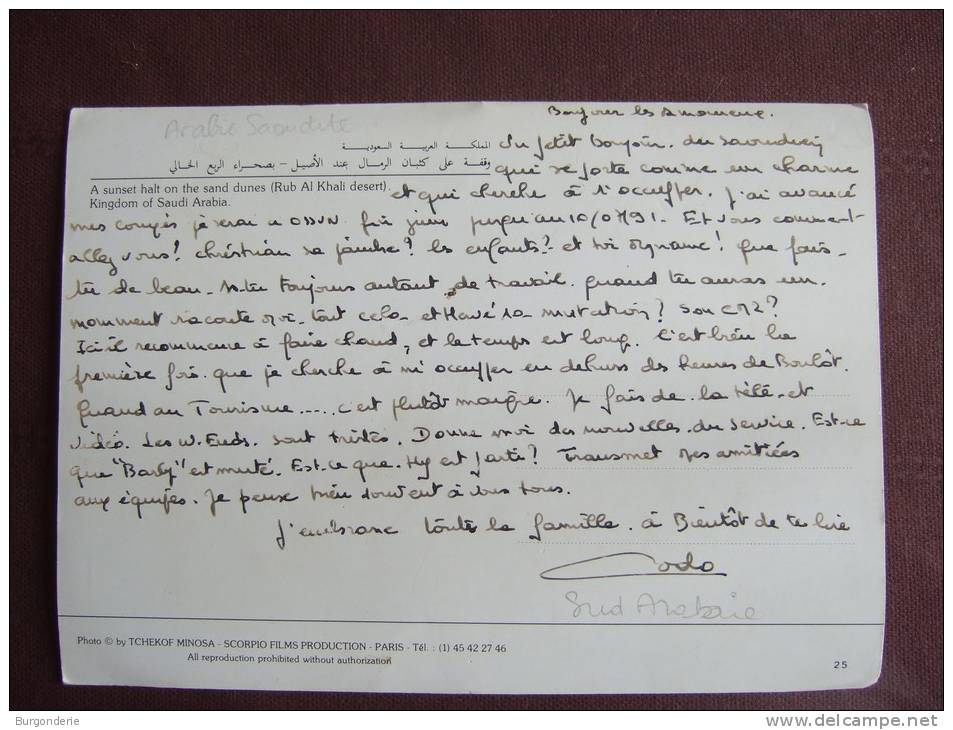 Bonjour les Amoureux.
Arabie Saoudite
Un petit bonjour du Saoudien
المملكة العربية السعودية
وقفة على كثبان الرمال عند الأصيل - بصحراء الربع الخالي
qui se porte comme un charme
A sunset halt on the sand dunes (Rub Al Khali desert).
Kingdom of Saudi Arabia.
et qui cherche à s'occuper. J'ai avancé
mes congés je serai a OSSUN fin juin jusqu'au 10/0791. Et vous comment
allez vous! Christian sa jambe? les enfants? et toi! Que fais-
tu de beau. As-tu toujours autant de travail. quand tu auras un
moment raconte moi tout cela et Hervé sa mutation? Son CM2?
Ici il recommence à faire chaud, et le temps est long. C'est bien la
première fois que je cherche à m'occuper en dehors des heures de Boulôt.
Quand au Tourisme..... c'est plutôt maigre. Je fais de la télé et
vidéo. Les W. Ends. sont tristes. Donne moi des nouvelles du service. Est-ce
que "Barty" est muté. Est-ce que est parti? Transmet mes amitiées
aux équipes. Je pense bien souvent à vous tous.
J'embrasse toute la famille. à Bientôt de te lire
Dodo
Sud Arabie
Photo © by TCHEKOF MINOSA - SCORPIO FILMS PRODUCTION - PARIS - Tél. : (1) 45 42 27 46
All reproduction prohibited without authorization
25
Burgonderie
www.delcampe.net